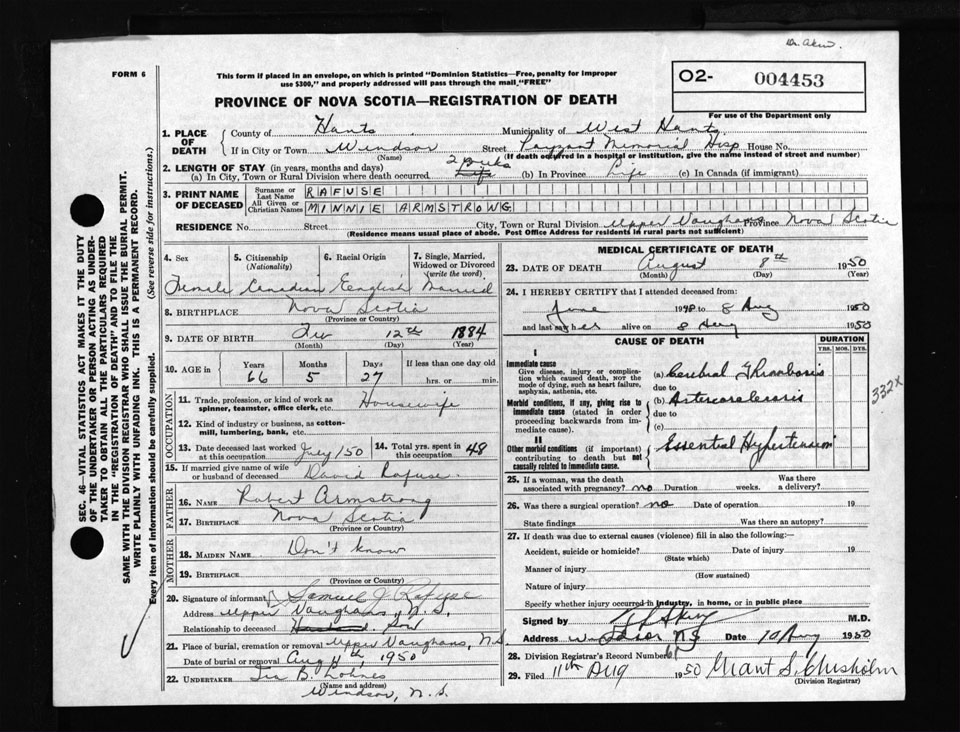 Dr. Akin.
FORM 6
This form if placed in an envelope, on which is printed "Dominion Statistics—Free, penalty for improper
use $300," and properly addressed will pass through the mail "FREE"
O2- 004453
For use of the Department only
PROVINCE OF NOVA SCOTIA—REGISTRATION OF DEATH
1. PLACE OF DEATH
County of Hants Municipality of West Hants
If in City or Town Windsor Street Payzant Memorial Hosp House No.
(Name) (If death occurred in a hospital or institution, give the name instead of street and number)
2. LENGTH OF STAY (in years, months and days)
(a) In City, Town or Rural Division where death occurred 2 weeks Life (b) In Province Life (c) In Canada (if immigrant)
3. PRINT NAME OF DECEASED
Surname or Last Name RAFUSE
All Given or Christian Names MINNIE ARMSTRONG
RESIDENCE No. Street City, Town or Rural Division Upper Vaughans Province Nova Scotia
(Residence means usual place of abode. Post Office Address for residents in rural parts not sufficient)
4. Sex 5. Citizenship (Nationality) 6. Racial Origin 7. Single, Married, Widowed or Divorced (write the word)
Female Canadian English Married
8. BIRTHPLACE Nova Scotia
(Province or Country)
9. DATE OF BIRTH 12th 1884
(Month) (Day) (Year)
10. AGE in Years Months Days If less than one day old
66 5 27 hrs. or min.
OCCUPATION
11. Trade, profession, or kind of work as spinner, teamster, office clerk, etc. Housewife
12. Kind of industry or business, as cotton-mill, lumbering, bank, etc.
13. Date deceased last worked at this occupation July /50 14. Total yrs. spent in this occupation 48
15. If married give name of wife or husband of deceased David Rafuse
FATHER
16. NAME Robert Armstrong
17. BIRTHPLACE Nova Scotia
(Province or Country)
MOTHER
18. MAIDEN NAME Don't know
19. BIRTHPLACE
(Province or Country)
20. Signature of informant Samuel J Rafuse
Address Upper Vaughans, N.S.
Relationship to deceased Husband Son
21. Place of burial, cremation or removal Upper Vaughans, N.S.
Date of burial or removal Aug 11th, 1950
22. UNDERTAKER Ira B. Lohnes
(Name and address)
Windsor, N.S.
MEDICAL CERTIFICATE OF DEATH
23. DATE OF DEATH August 8th 1950
(Month) (Day) (Year)
24. I HEREBY CERTIFY that I attended deceased from:
June 1948 to 8 Aug 1950
and last saw her alive on 8 Aug 1950
CAUSE OF DEATH DURATION
YRS. MOS. DYS.
I
Immediate cause
Give disease, injury or complication which caused death, NOT the mode of dying, such as heart failure, asphyxia, asthenia, etc.
(a) Cerebral Thrombosis
due to
Morbid conditions, if any, giving rise to immediate cause (stated in order proceeding backwards from immediate cause).
(b) Arteriosclerosis
due to
(c)
332X
II
Other morbid conditions (if important) contributing to death but not causally related to immediate cause.
Essential Hypertension
25. If a woman, was the death associated with pregnancy? no Duration weeks. Was there a delivery?
26. Was there a surgical operation? no Date of operation 19
State findings Was there an autopsy?
27. If death was due to external causes (violence) fill in also the following:—
Accident, suicide or homicide? Date of injury 19
(State which)
Manner of injury
(How sustained)
Nature of injury
Specify whether injury occurred in industry, in home, or in public place
Signed by M.D.
Address Windsor NS Date 10 Aug 1950
28. Division Registrar's Record Number
29. Filed 11th Aug 1950 Grant S. Chisholm
(Division Registrar)
SEC. 46—VITAL STATISTICS ACT MAKES IT THE DUTY
OF THE UNDERTAKER OR PERSON ACTING AS UNDER-
TAKER TO OBTAIN ALL THE PARTICULARS REQUIRED
IN THE "REGISTRATION OF DEATH" AND TO FILE THE
SAME WITH THE DIVISION REGISTRAR WHO SHALL ISSUE THE BURIAL PERMIT.
WRITE PLAINLY WITH UNFADING INK. THIS IS A PERMANENT RECORD.
Every item of information should be carefully supplied. (See reverse side for instructions.)